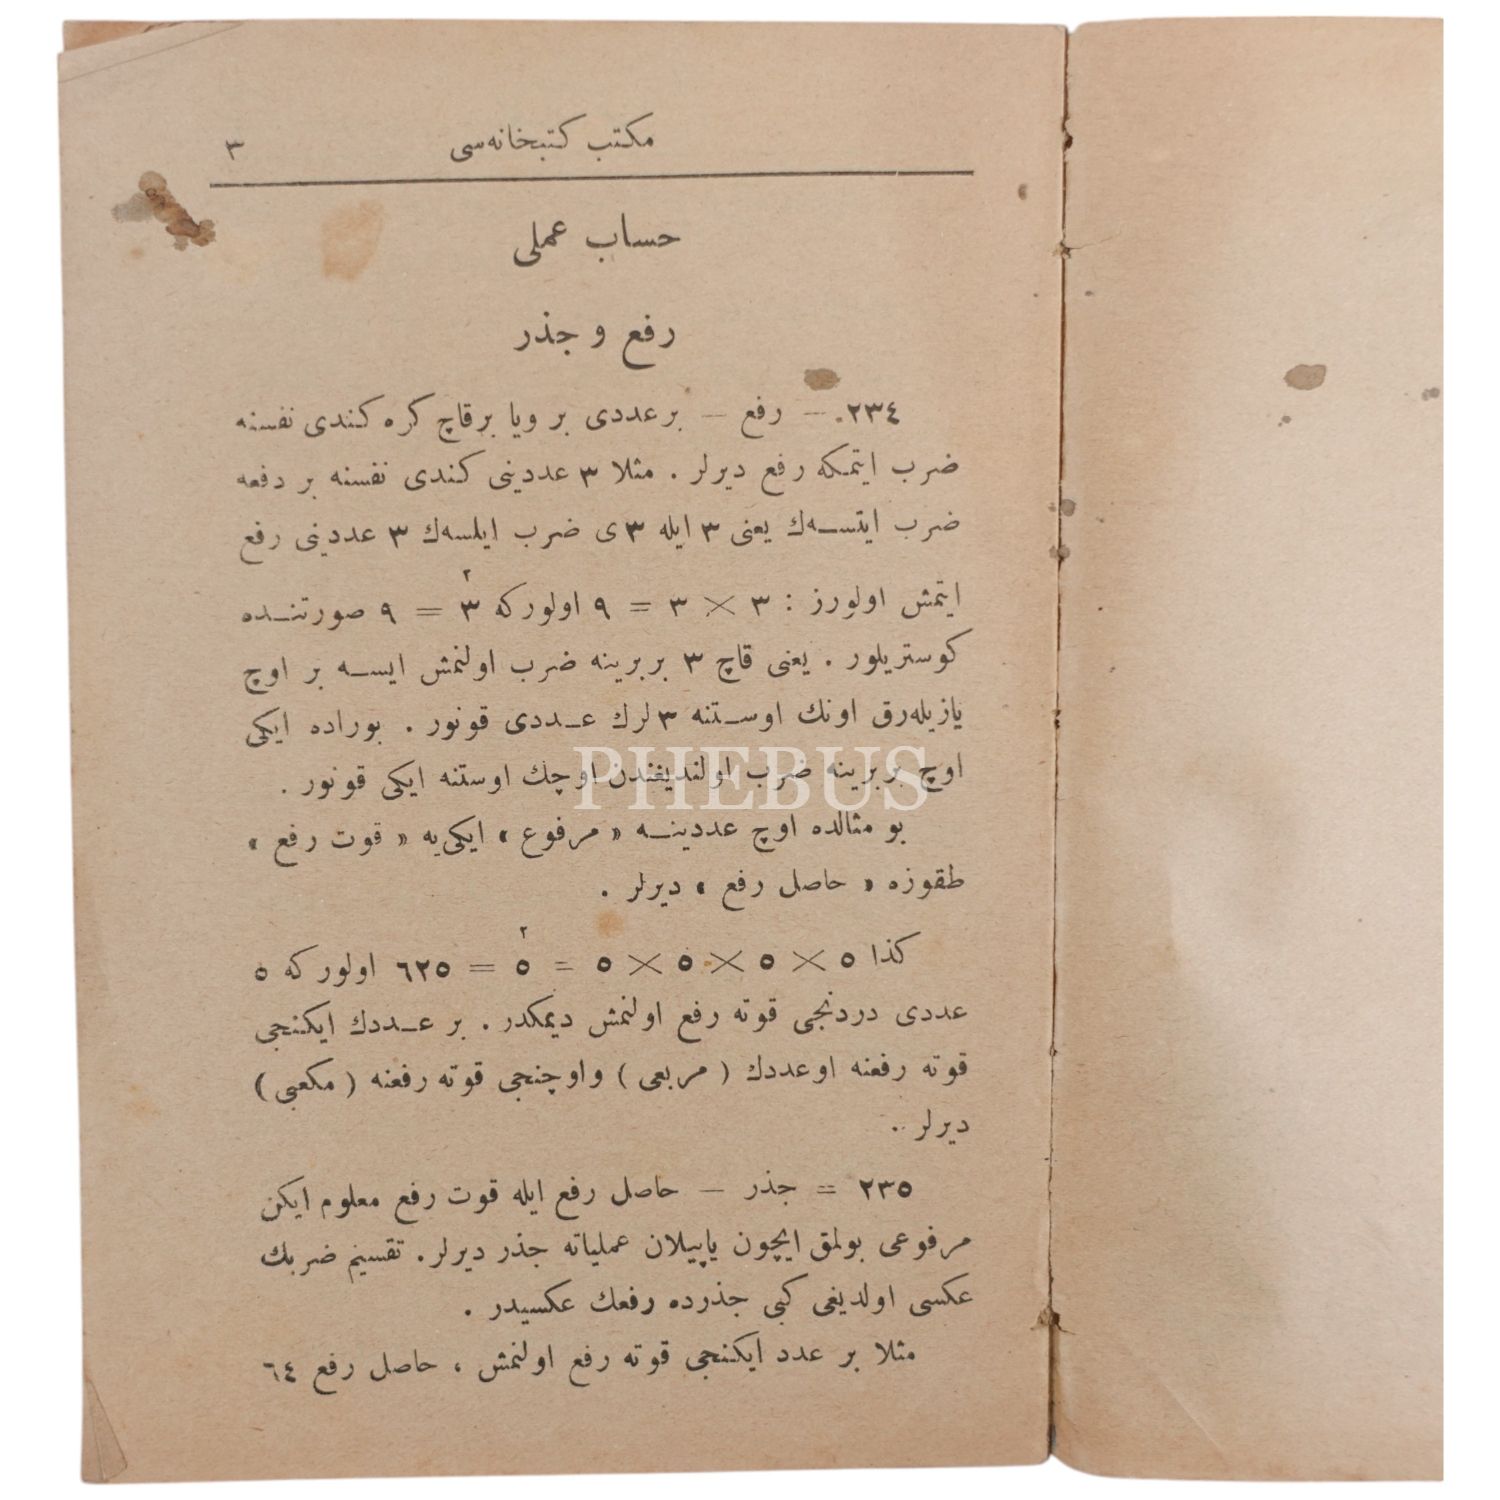 مكتب كتبخانه‌سی ٣
حساب عملی
رفع و جذر
٢٣٤. — رفع — بر عددی بر ویا بر قاچ كره كندی نفسنه
ضرب ایتمكه رفع دیرلر . مثلا ٣ عددینی كندی نفسنه بر دفعه
ضرب ایتسه‌ك یعنی ٣ ایله ٣ ی ضرب ایلسه‌ك ٣ عددینی رفع
ایتمش اولورز : ٣ × ٣ = ٩ اولوركه ٣٢ = ٩ صورتنده
كوستریلور . یعنی قاچ ٣ بربرینه ضرب اولنمش ایسه بر اوچ
یازیله‌رق اونك اوستنه ٣ لرك عددی قونور . بوراده ایكی
اوچ بربرینه ضرب اولندیغندن اوچك اوستنه ایكی قونور .
PHEBUS
بو مثالده اوچ عددینه « مرفوع » ایكی‌یه « قوت رفع »
طقوزه « حاصل رفع » دیرلر .
كذا ٥ × ٥ × ٥ × ٥ = ٥٢ = ٦٢٥ اولوركه ٥
عددی دردنجی قوته رفع اولنمش دیمكدر . بر عددك ایكنجی
قوته رفعنه او عددك ( مربعی ) واوچنجی قوته رفعنه ( مكعبی )
دیرلر .
٢٣٥ = جذر — حاصل رفع ایله قوت رفع معلوم ایكن
مرفوعی بولمق ایچون یاپیلان عملیاته جذر دیرلر . تقسیم ضربك
عكسی اولدیغی كبی جذرده رفعك عكسیدر .
مثلا بر عدد ایكنجی قوته رفع اولنمش ، حاصل رفع ٦٤